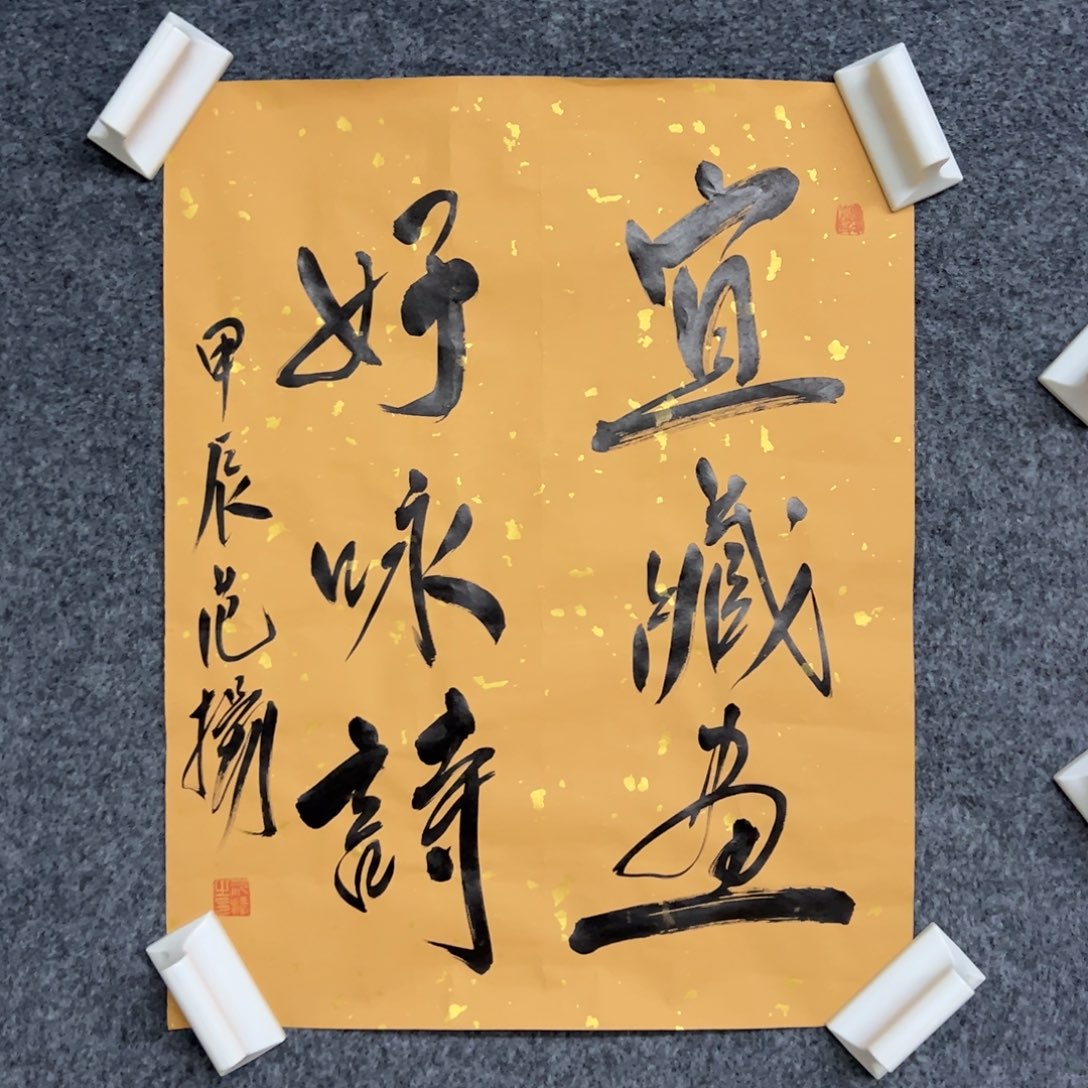 宜藏畫
好咏詩
甲辰范揚